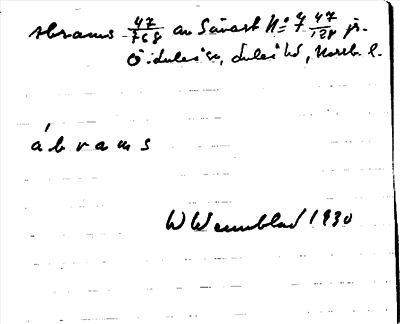 Abrams 47/768 av Savast Nº 7 47/128 jr.
Ö. Luleå sn, Luleå hd, Norrb. l.
á b r a m s
W Wennblad 1930